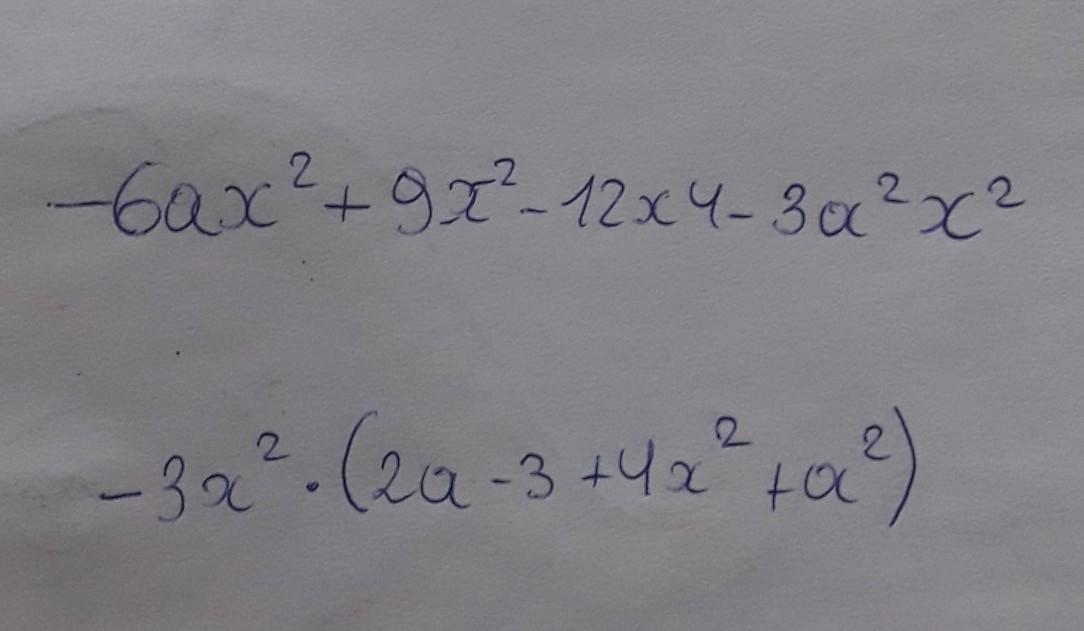 -6ax² + 9x² - 12x4 - 3a²x²
-3x² · (2a - 3 + 4x² + a²)